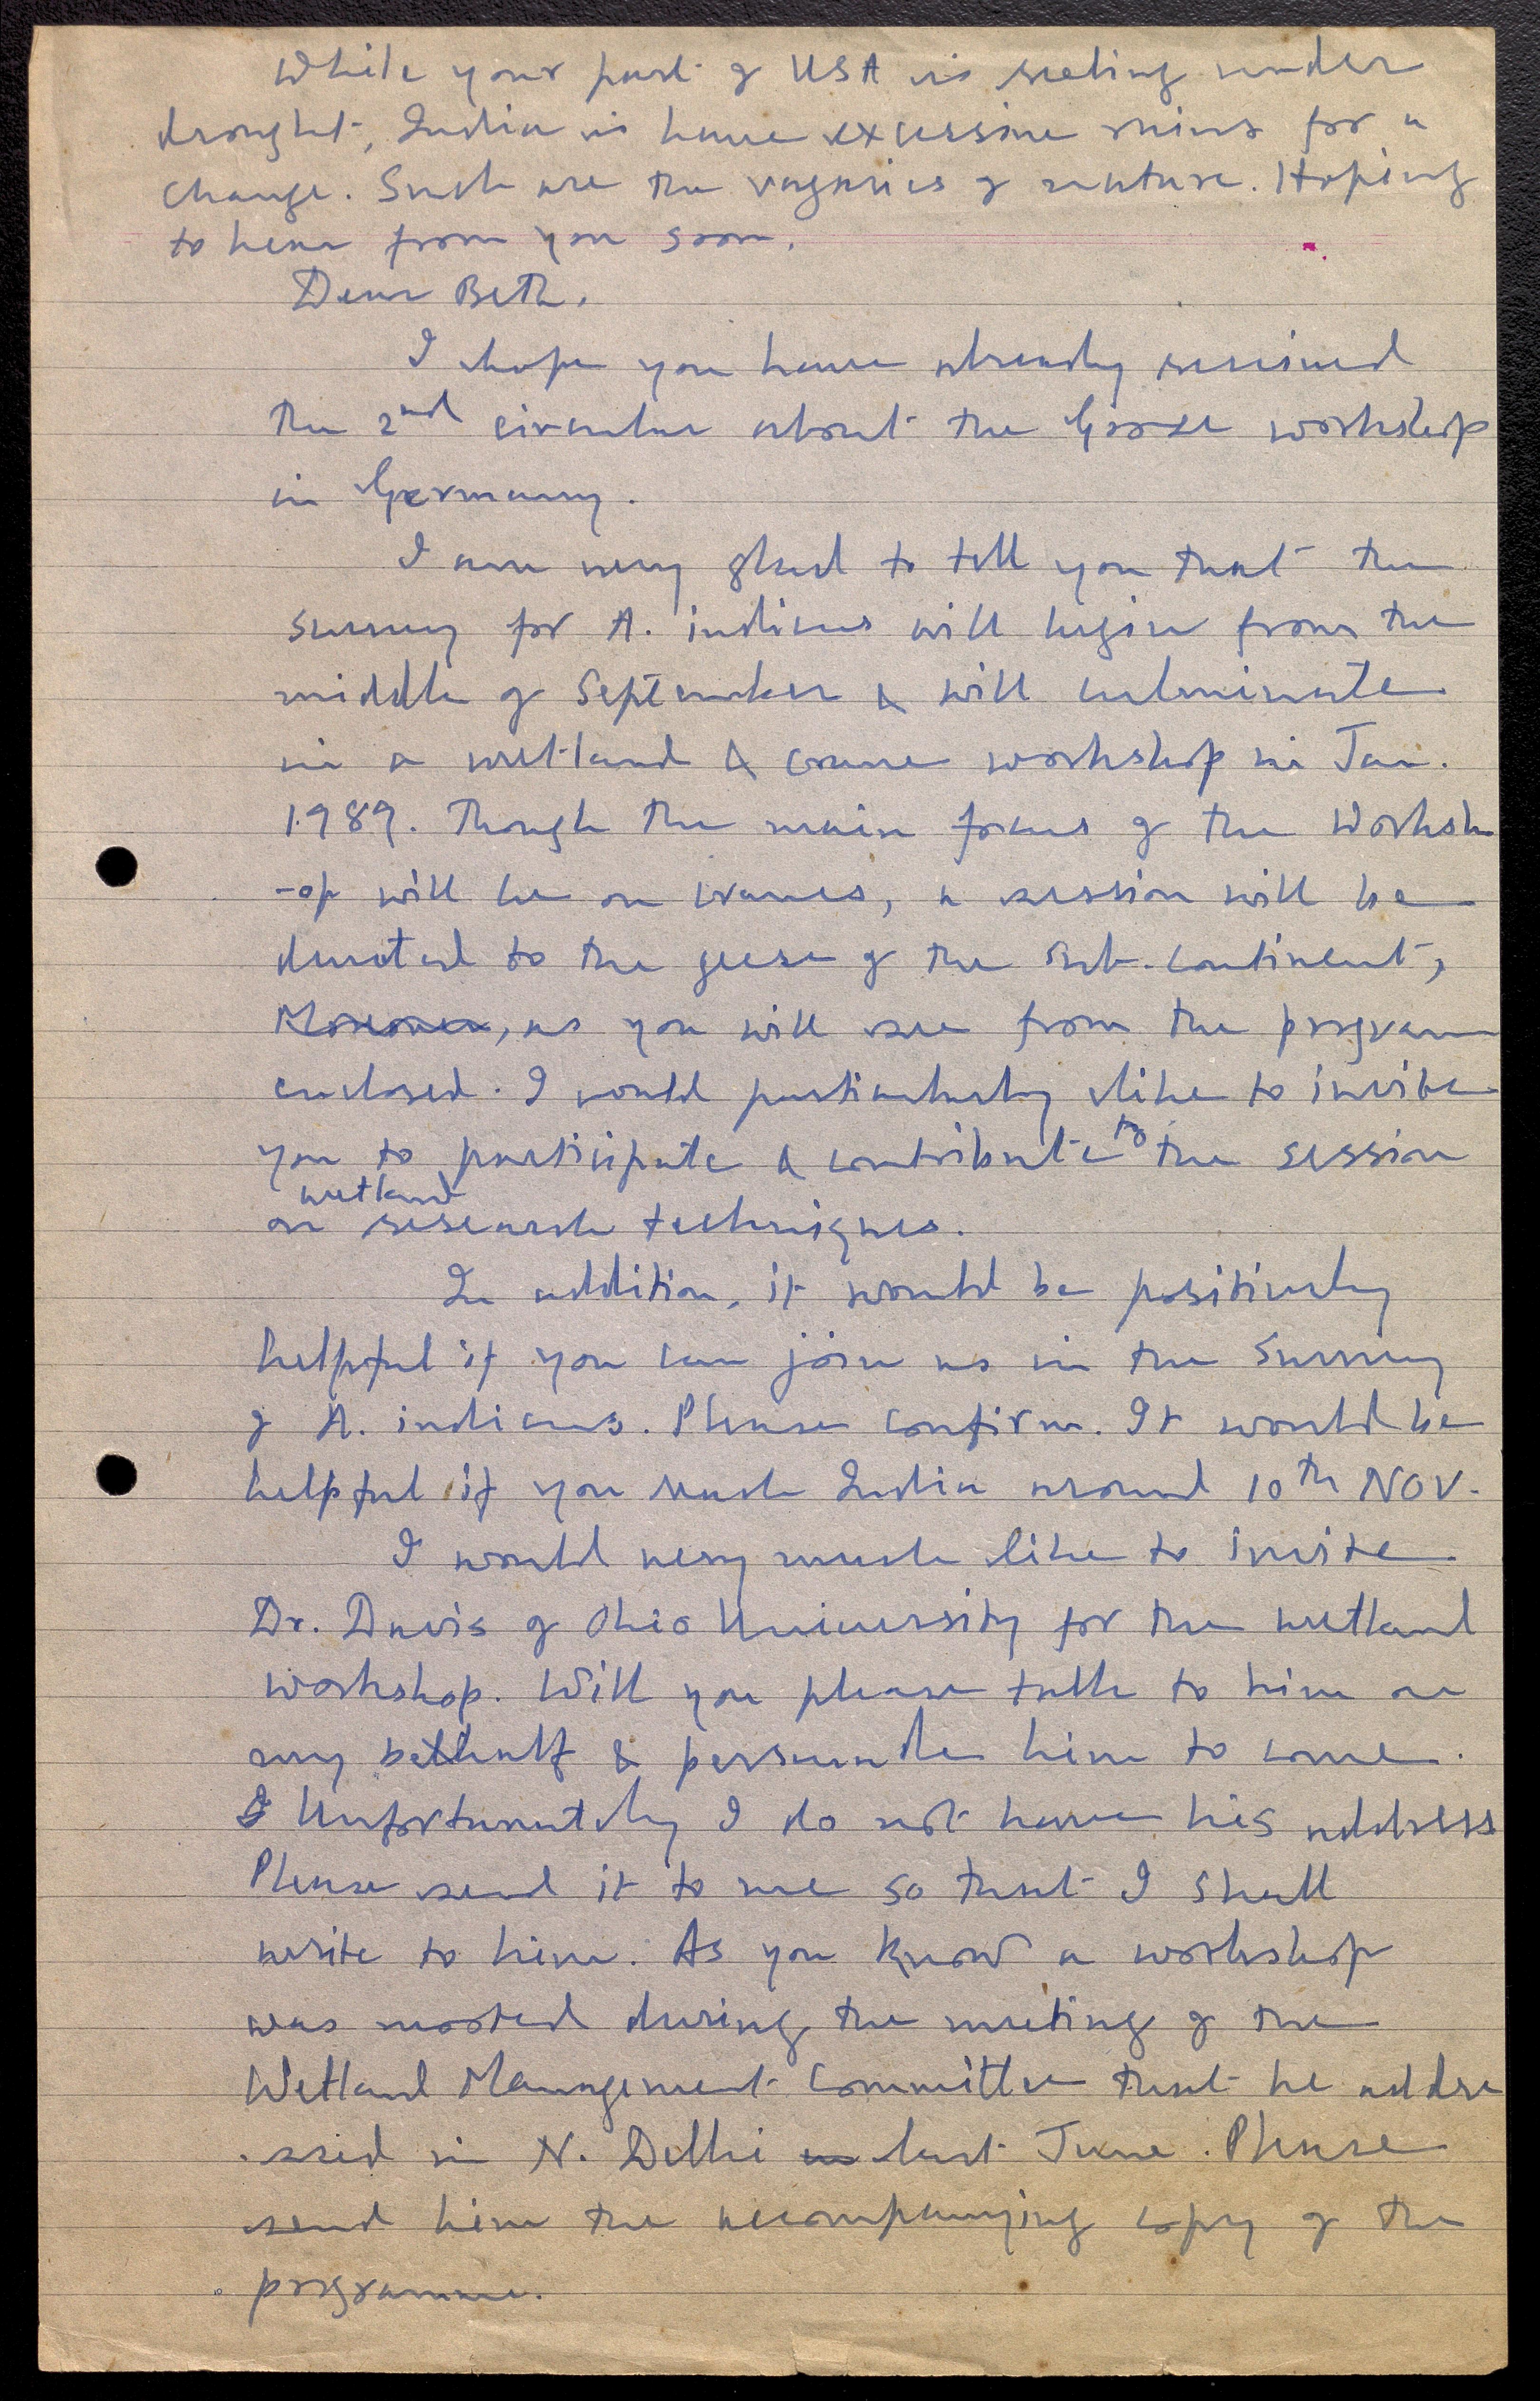 While your part of USA is reeling under
drought, India is have excessive rains for a
change. Such are the vagaries of nature. Hoping
to hear from you soon.
Dear Beth,
I hope you have already received
the 2nd circular about the Goose workshop
in Germany.
I am very glad to tell you that the
survey for A. indicus will begin from the
middle of September & will culminate
in a wetland & crane workshop in Jan.
1989. Though the main focus of the Worksh
-op will be on cranes, a session will be
devoted to the geese of the sub-continent,
Moreover, as you will see from the program
enclosed. I would particularly like to invite
you to participate & contribute to the session
on wetland research techniques.
In addition, it would be positively
helpful if you can join us in the Survey
of A. indicus. Please confirm. It would be
helpful if you reach India around 10th NOV.
I would very much like to invite
Dr. Davis of Ohio University for the wetland
workshop. Will you please talk to him on
my behalf & persuade him to come.
I Unfortunately I do not have his address
Please send it to me so that I shall
write to him. As you know a workshop
was mooted during the meeting of the
Wetland Management Committee that he addre
-ssed in N. Delhi in last June. Please
send him the accompanying copy of the
programme.